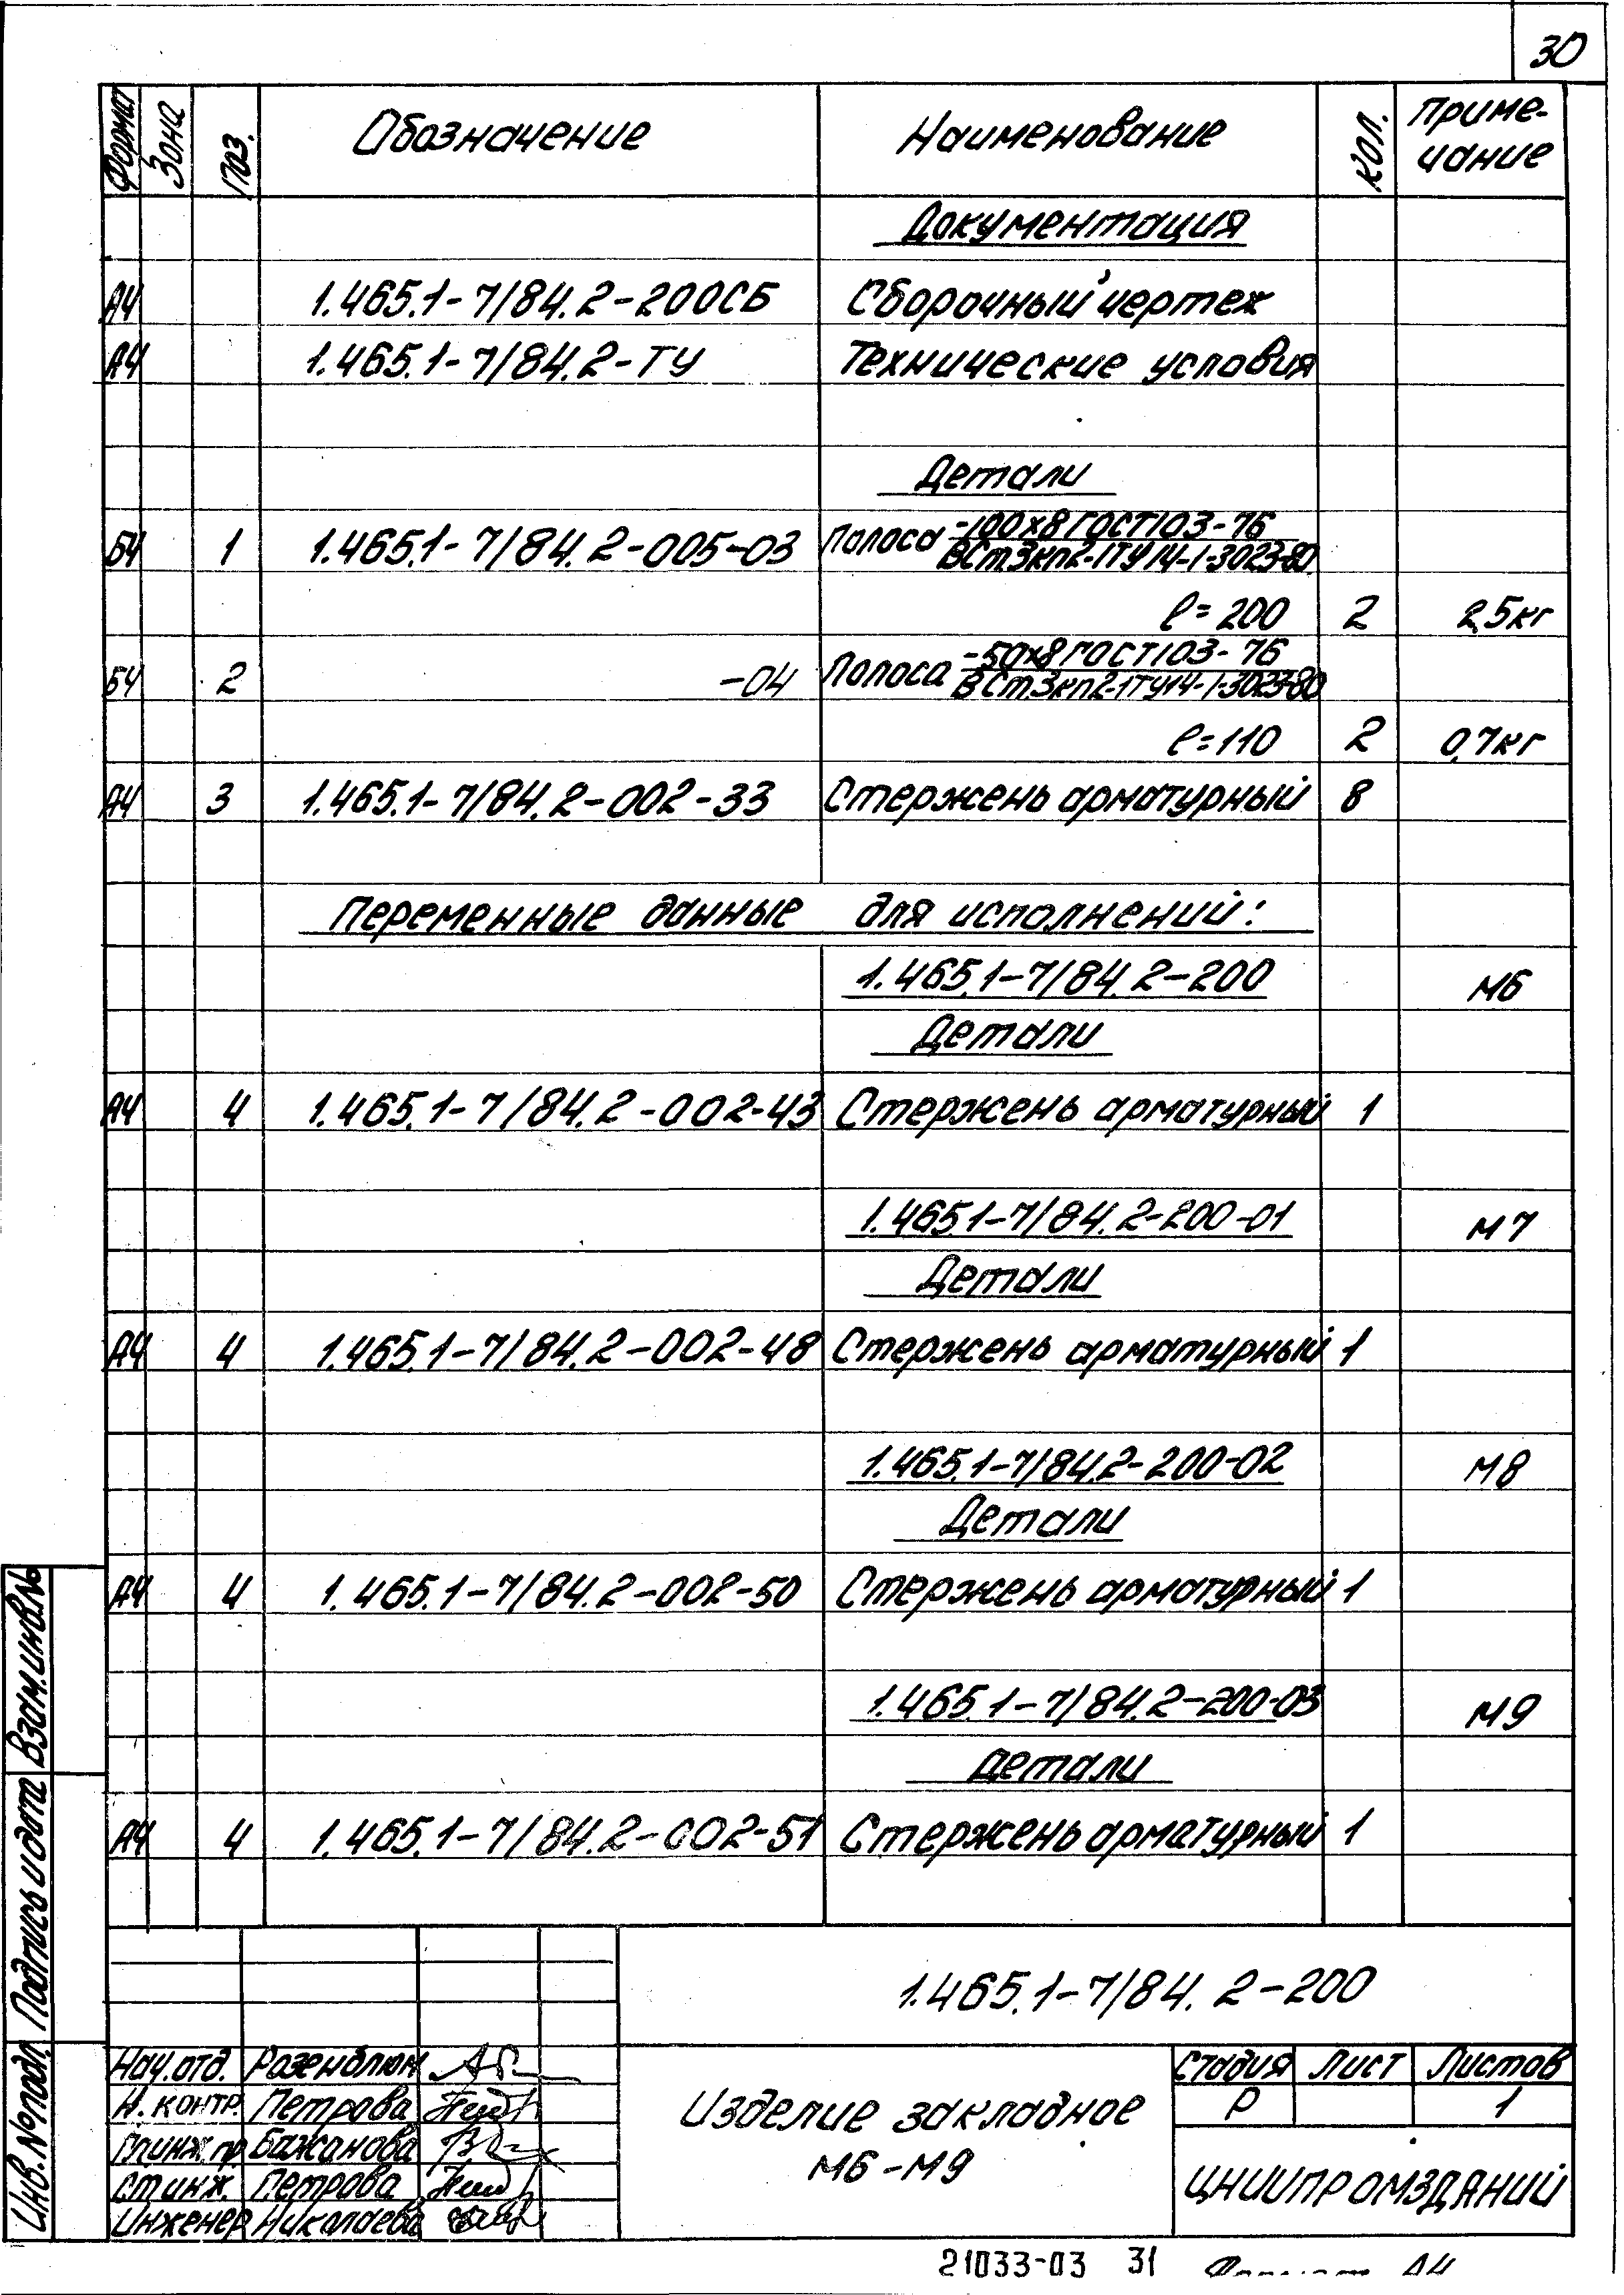 30
Формат Зона Поз. Обозначение Наименование Кол. Приме-
чание
Документация
А4 1.465.1-7/84.2-200СБ Сборочный чертеж
А4 1.465.1-7/84.2-ТУ Технические условия
Детали
БЧ 1 1.465.1-7/84.2-005-03 Полоса -100х8 ГОСТ103-76
ВСт3кп2-1ТУ14-1-3023-80
ℓ=200 2 2,5кг
БЧ 2 -04 Полоса -50х8 ГОСТ103-76
ВСт3кп2-1ТУ14-1-3023-80
ℓ=110 2 0,7кг
А4 3 1.465.1-7/84.2-002-33 Стержень арматурный 8
Переменные данные для исполнений:
1.465.1-7/84.2-200 М6
Детали
А4 4 1.465.1-7/84.2-002-43 Стержень арматурный 1
1.465.1-7/84.2-200-01 М7
Детали
А4 4 1.465.1-7/84.2-002-48 Стержень арматурный 1
1.465.1-7/84.2-200-02 М8
Детали
А4 4 1.465.1-7/84.2-002-50 Стержень арматурный 1
1.465.1-7/84.2-200-03 М9
Детали
А4 4 1.465.1-7/84.2-002-51 Стержень арматурный 1
Взам.инв.№
Подпись и дата
Инв.№подл.
1.465.1-7/84.2-200
Нач.отд. Розенблюм
Н.контр. Петрова
Гл.инж.пр. Бажанова
Ст.инж. Петрова
Инженер Николаева
Изделие закладное
М6-М9
Стадия Лист Листов
Р 1
ЦНИИПРОМЗДАНИЙ
21033-03 31 Формат А4